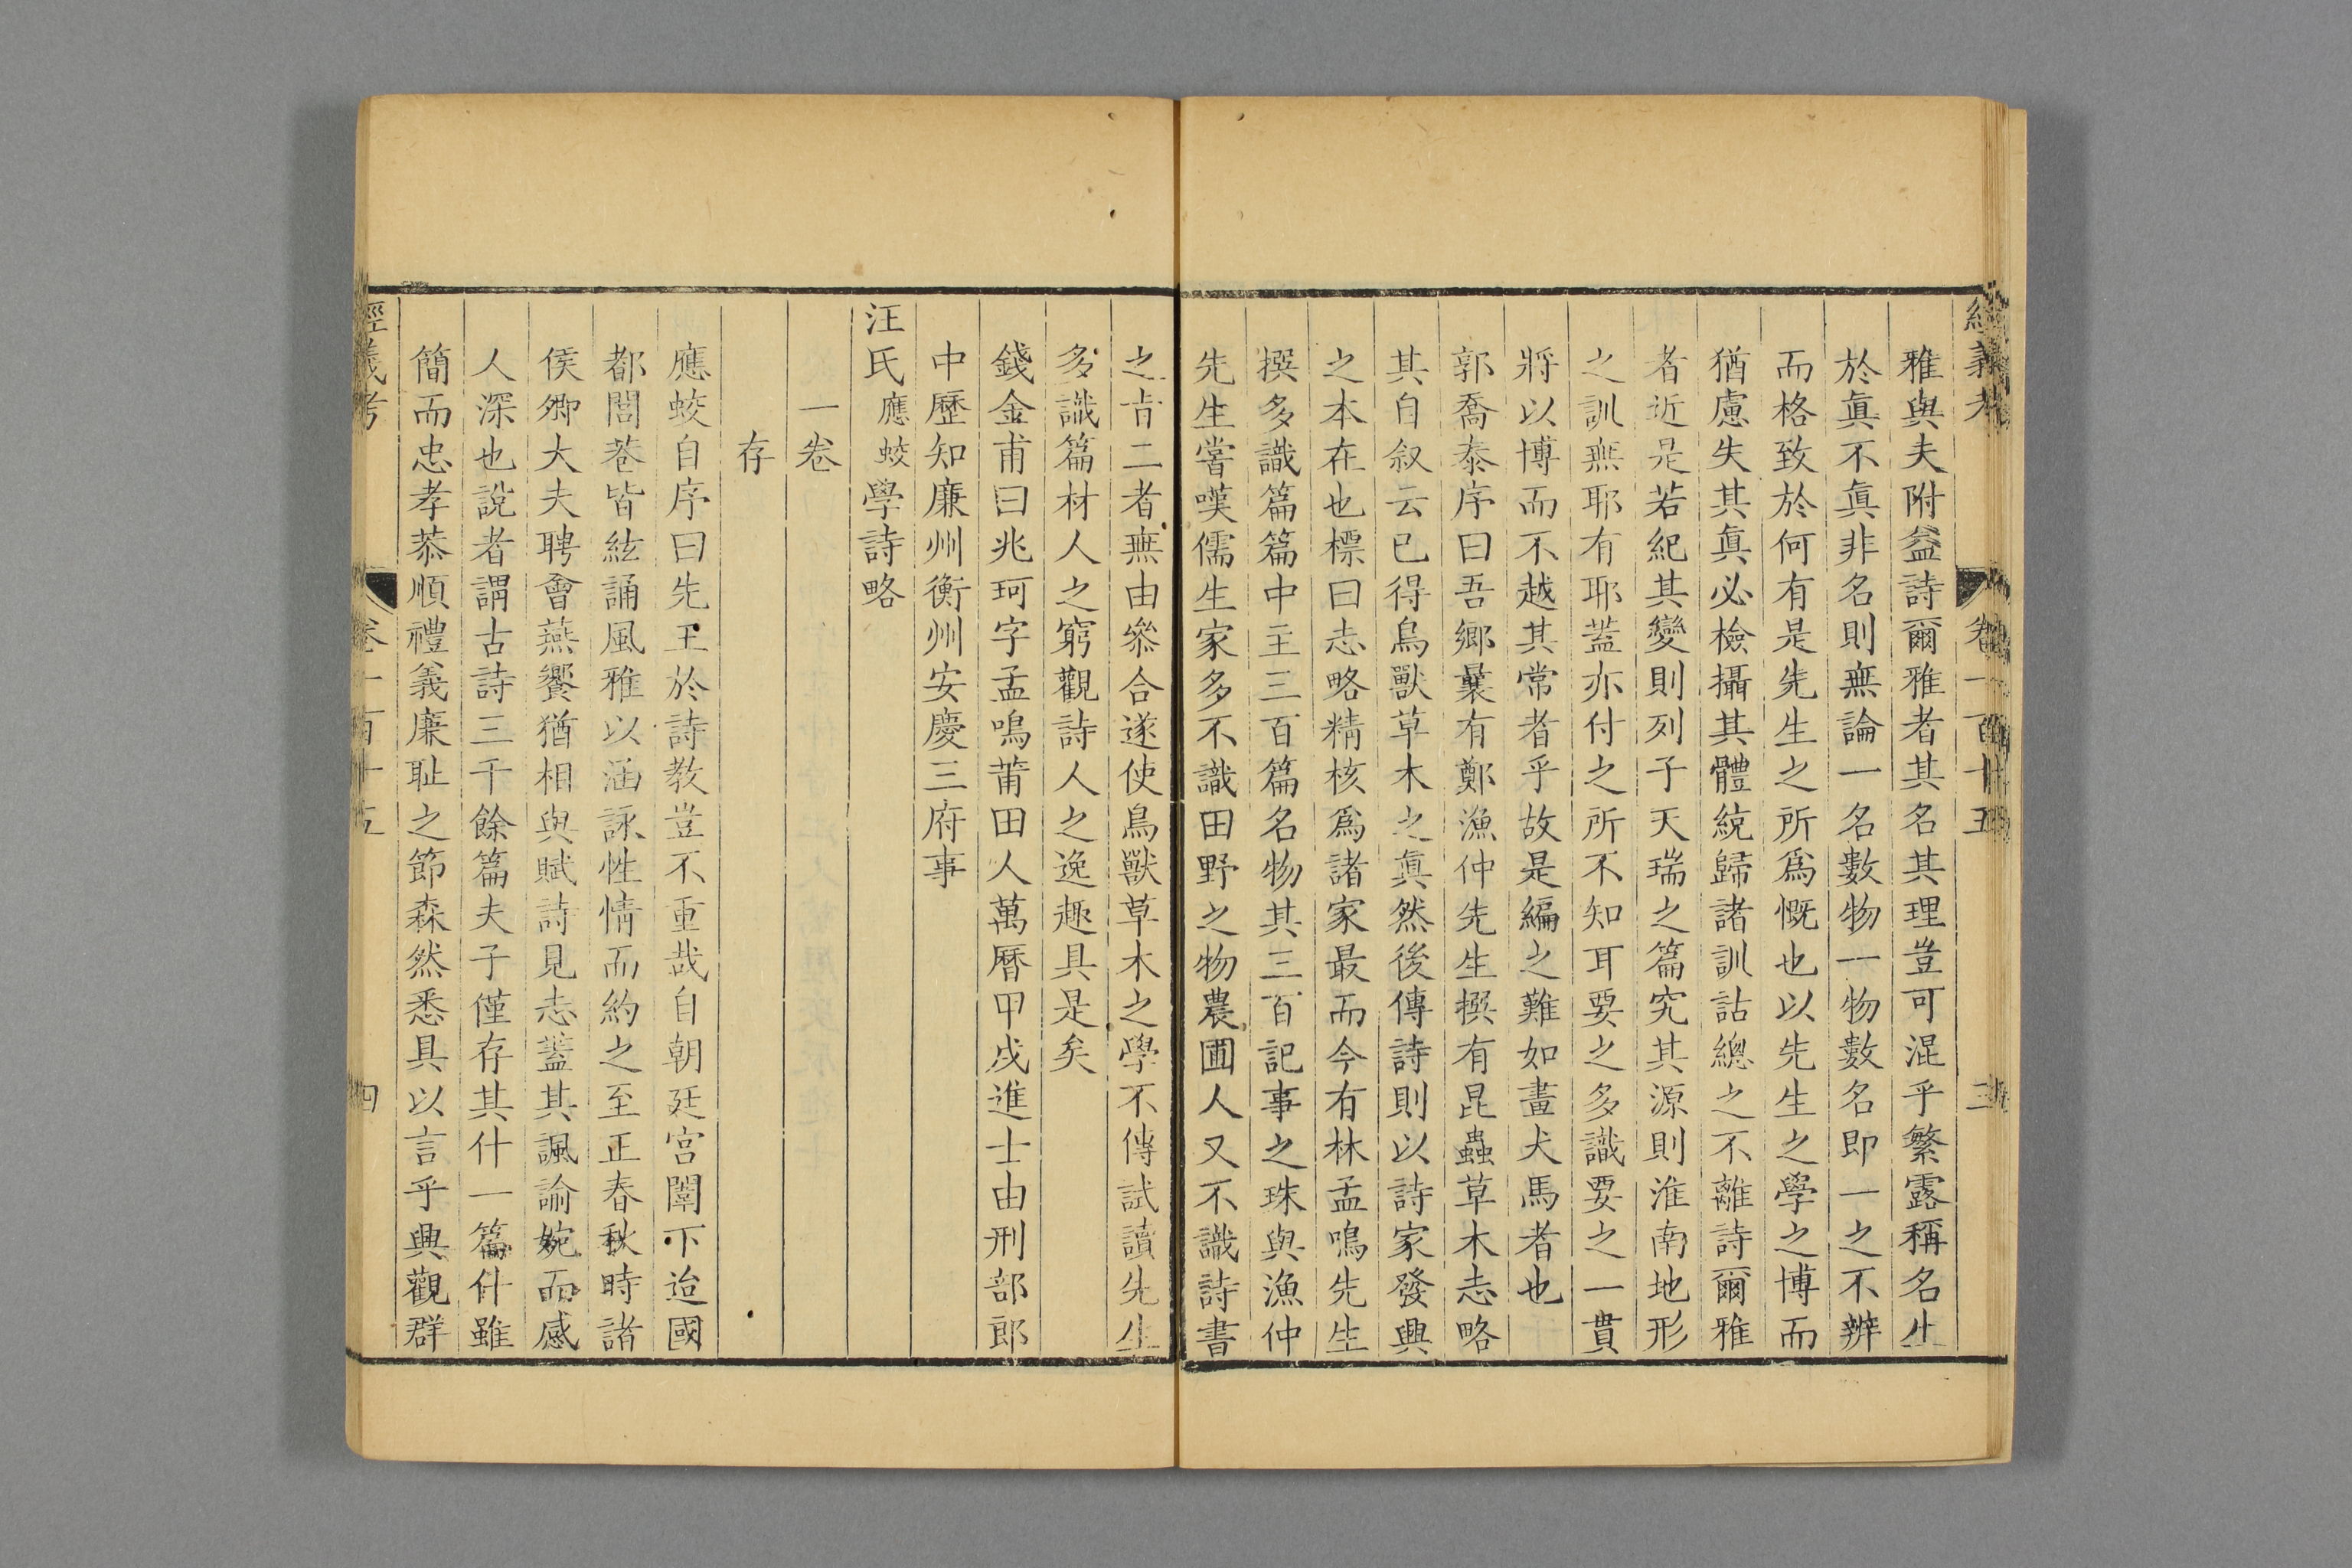 經義考 卷一百十五 三
雅與夫附益詩爾雅者其名其理豈可混乎繁露稱名生
於眞不眞非名則無論一名數物一物數名即一之不辨
而格致於何有是先生之所爲慨也以先生之學之博而
猶慮失其眞必檢攝其體統歸諸訓詁總之不離詩爾雅
者近是若紀其變則列子天瑞之篇究其源則淮南地形
之訓無耶有耶蓋亦付之所不知耳要之多識要之一貫
將以博而不越其常者乎故是編之難如畫犬馬者也
郭喬泰序曰吾鄉曩有鄭漁仲先生撰有昆蟲草木志略
其自叙云已得鳥獸草木之眞然後傳詩則以詩家發興
之本在也標曰志略精核爲諸家最而今有林孟鳴先生
撰多識篇篇中主三百篇名物其三百記事之珠與漁仲
先生嘗嘆儒生家多不識田野之物農圃人又不識詩書
之旨二者無由參合遂使鳥獸草木之學不傳試讀先生
多識篇材人之窮觀詩人之逸趣具是矣
錢金甫曰兆珂字孟鳴莆田人萬曆甲戌進士由刑部郎
中歷知廉州衡州安慶三府事
汪氏應蛟學詩略
一卷
存
應蛟自序曰先王於詩教豈不重哉自朝廷宮闈下迨國
都閭巷皆絃誦風雅以涵詠性情而約之至正春秋時諸
侯卿大夫聘會燕饗猶相與賦詩見志蓋其諷諭婉而感
人深也說者謂古詩三千餘篇夫子僅存其什一篇什雖
簡而忠孝恭順禮義廉耻之節森然悉具以言乎興觀群
經義考 卷一百十五 四